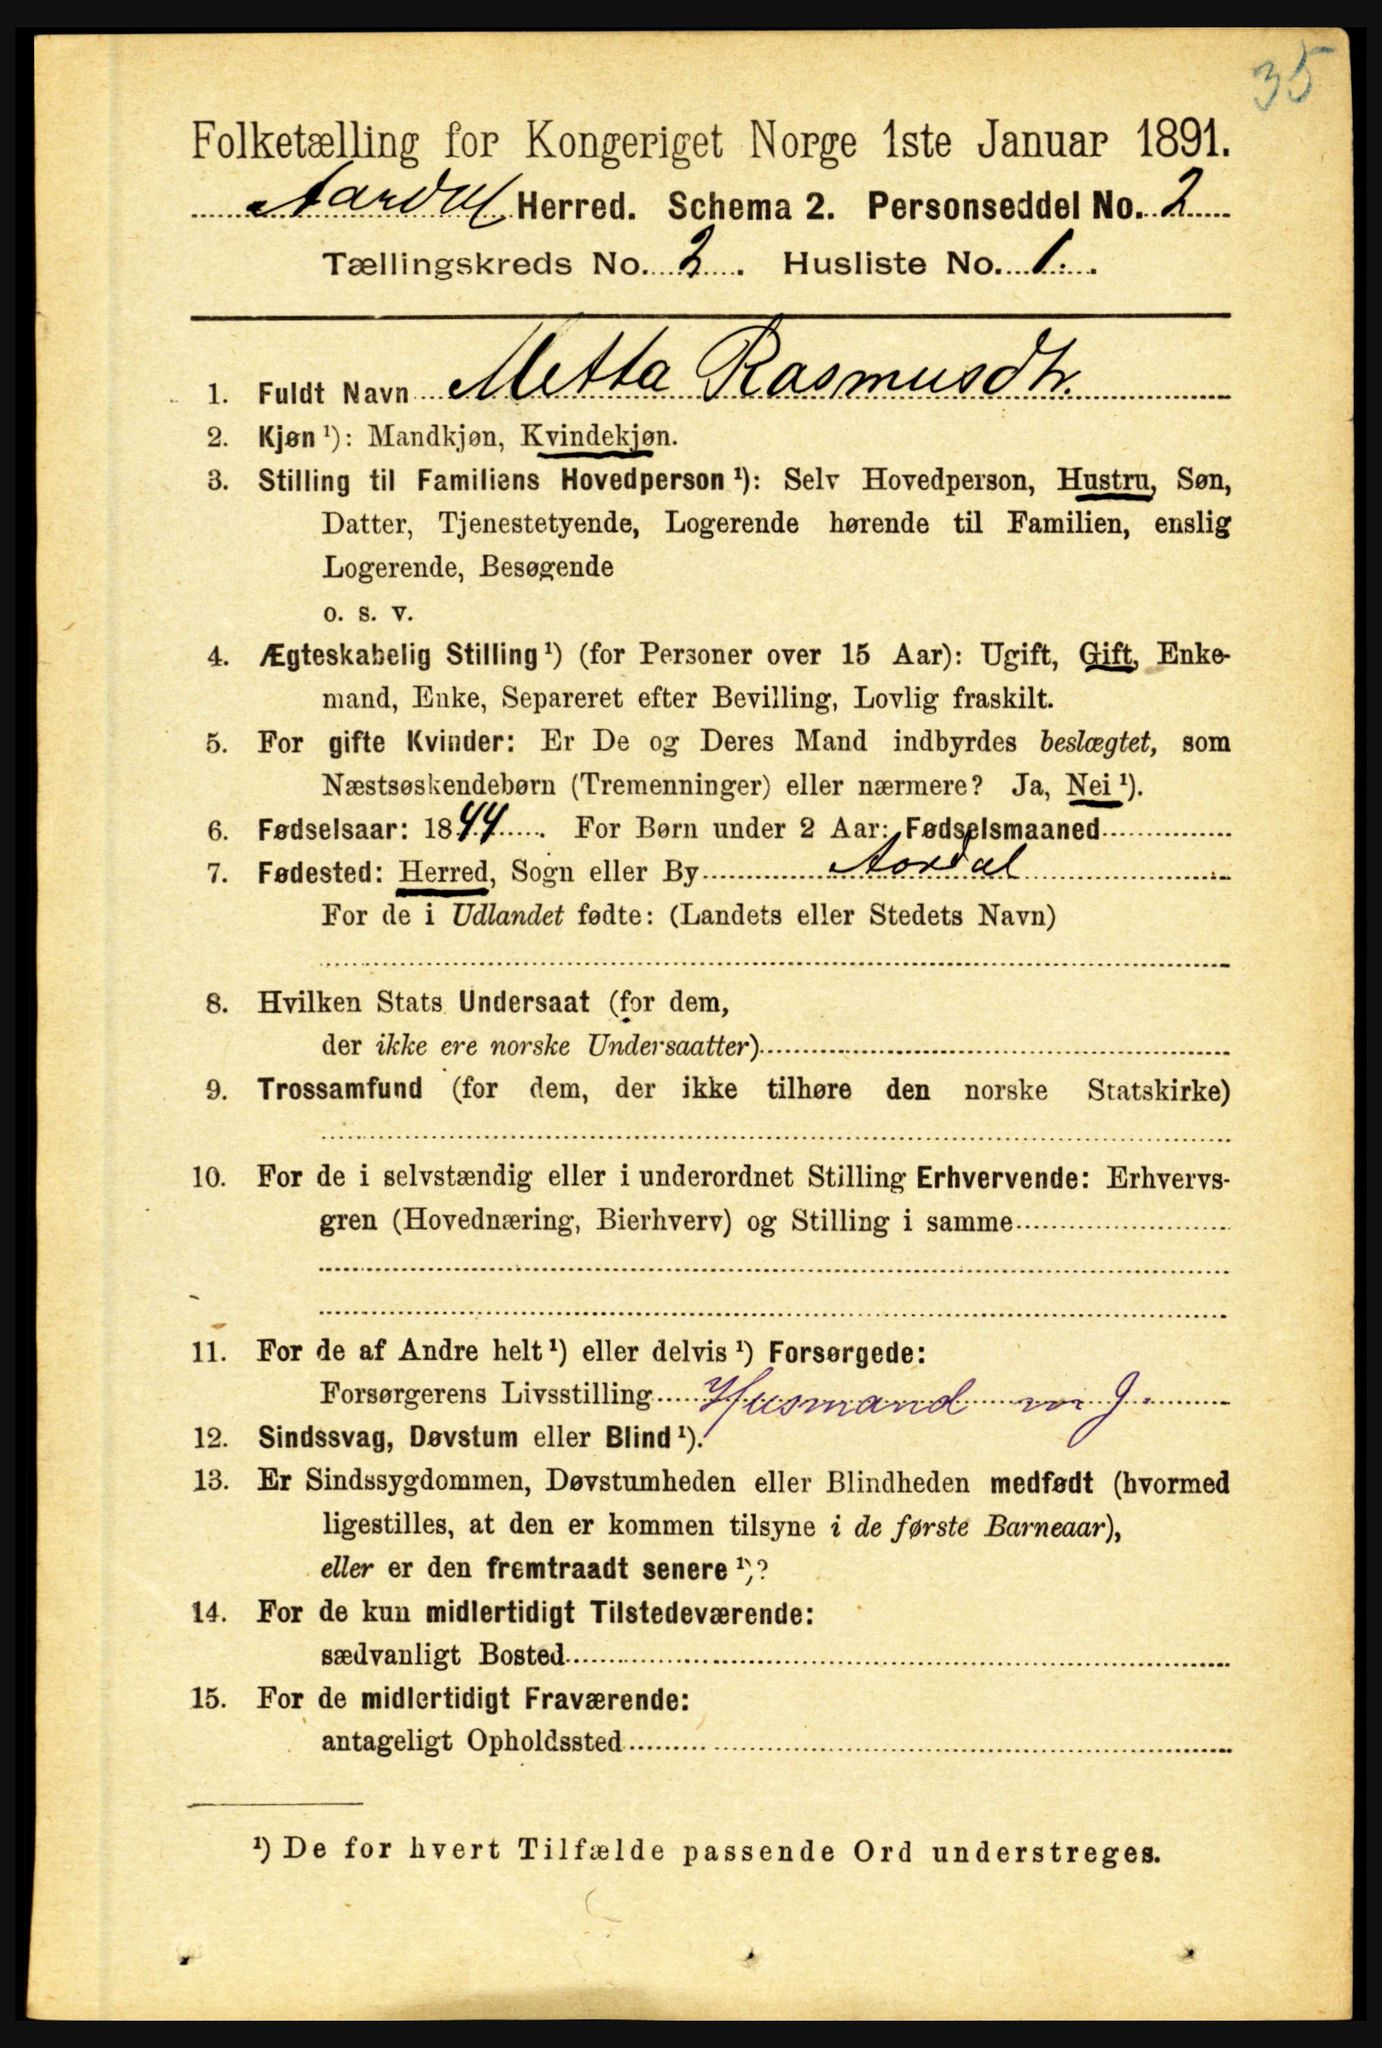 35
Folketælling for Kongeriget Norge 1ste Januar 1891.
Aardal Herred. Schema 2. Personseddel No. 2
Tællingskreds No. 2. Husliste No. 1.
1. Fuldt Navn Metta Rasmusdtr.
2. Kjøn ¹): Mandkjøn, Kvindekjøn.
3. Stilling til Familiens Hovedperson ¹): Selv Hovedperson, Hustru, Søn,
Datter, Tjenestetyende, Logerende hørende til Familien, enslig
Logerende, Besøgende
o. s. v.
4. Ægteskabelig Stilling ¹) (for Personer over 15 Aar): Ugift, Gift, Enke-
mand, Enke, Separeret efter Bevilling, Lovlig fraskilt.
5. For gifte Kvinder: Er De og Deres Mand indbyrdes beslægtet, som
Næstsøskendebørn (Tremenninger) eller nærmere? Ja, Nei ¹).
6. Fødselsaar: 1844. For Børn under 2 Aar: Fødselsmaaned
7. Fødested: Herred, Sogn eller By Aardal
For de i Udlandet fødte: (Landets eller Stedets Navn)
8. Hvilken Stats Undersaat (for dem,
der ikke ere norske Undersaatter)
9. Trossamfund (for dem, der ikke tilhøre den norske Statskirke)
10. For de i selvstændig eller i underordnet Stilling Erhvervende: Erhvervs-
gren (Hovednæring, Bierhverv) og Stilling i samme
11. For de af Andre helt ¹) eller delvis ¹) Forsørgede:
Forsørgerens Livsstilling Husmand m J.
12. Sindssvag, Døvstum eller Blind ¹).
13. Er Sindssygdommen, Døvstumheden eller Blindheden medfødt (hvormed
ligestilles, at den er kommen tilsyne i de første Barneaar),
eller er den fremtraadt senere ¹)?
14. For de kun midlertidigt Tilstedeværende:
sædvanligt Bosted
15. For de midlertidigt Fraværende:
antageligt Opholdssted
¹) De for hvert Tilfælde passende Ord understreges.